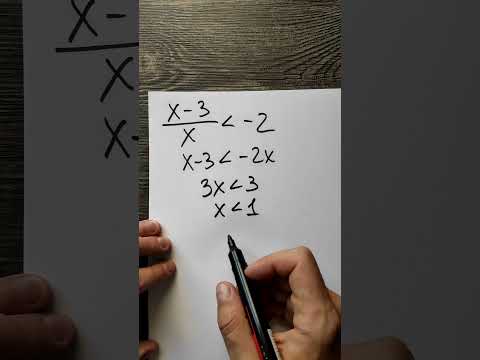 x-3
/x < -2
x-3 < -2x
3x < 3
x < 1